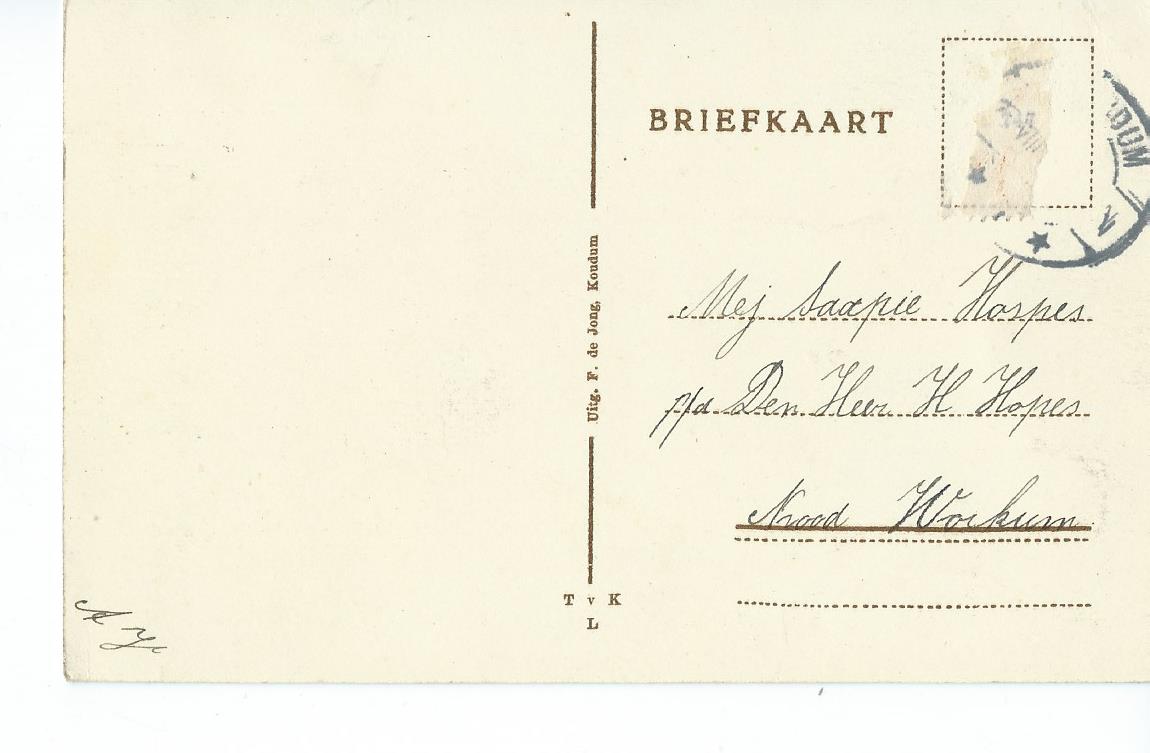 BRIEFKAART
DUM
1
Uitg. F. de Jong, Koudum
Mej Saapie Hospes
p/a Den Heer H Hopes
Nrood Workum
T v K
L